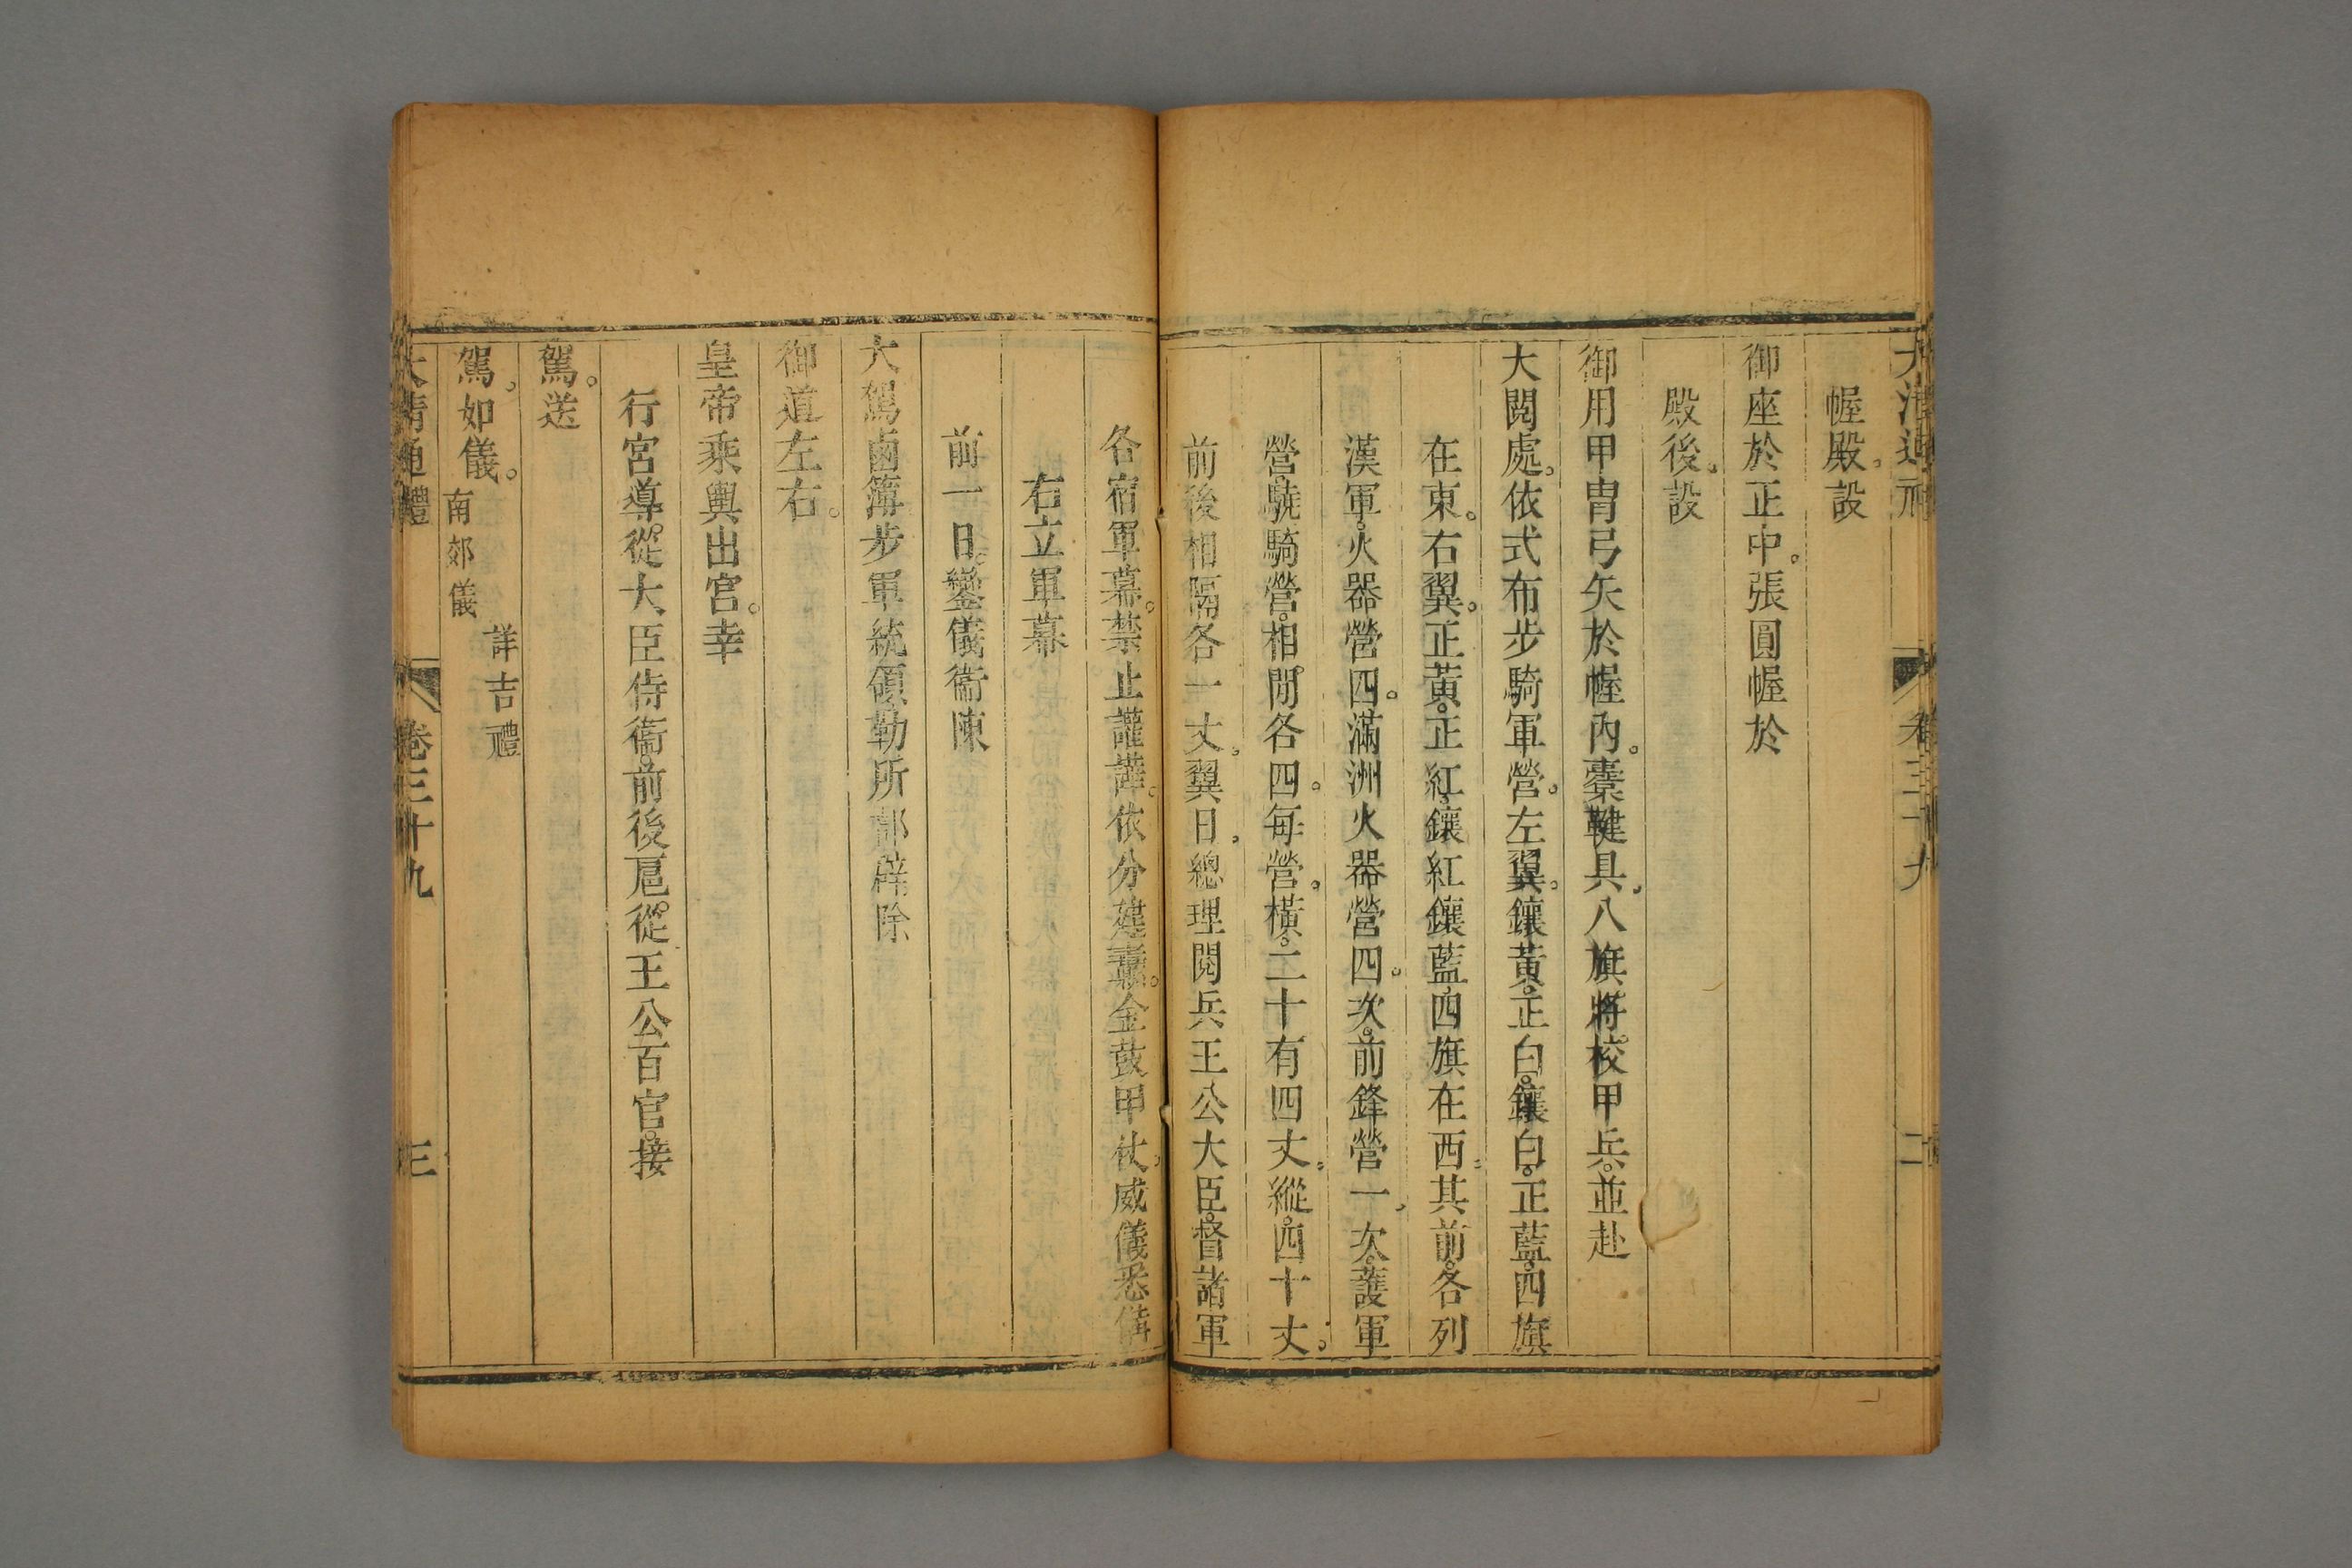 大清通禮 卷三十九 二
幄殿。設
御座於正中。張圓幄於
殿後。設
御用甲冑弓矢於幄內。櫜鞬具。八旗將校甲兵。並赴
大閱處。依式布步騎軍營。左翼。鑲黃。正白。鑲白。正藍。四旗
在東。右翼。正黃。正紅。鑲紅鑲藍。四旗在西。其前。各列
漢軍。火器營四。滿洲火器營四。次。前鋒營一。次。護軍
營。驍騎營。相閒各四。每營。橫。二十有四丈。縱。四十丈。
前後相隔各一丈。翼日。總理閱兵王公大臣。督諸軍
各宿軍幕。禁止讙譁。依分建纛。金鼓甲仗。威儀悉備
右立軍幕
前一日。鑾儀衞陳
大駕鹵簿步軍統領勒所部辟除
御道左右。
皇帝乘輿出宮。幸
行宮。導從大臣侍衞。前後扈從。王公百官。接
駕。送
駕。如儀。詳吉禮南郊儀
大清通禮 卷三十九 三